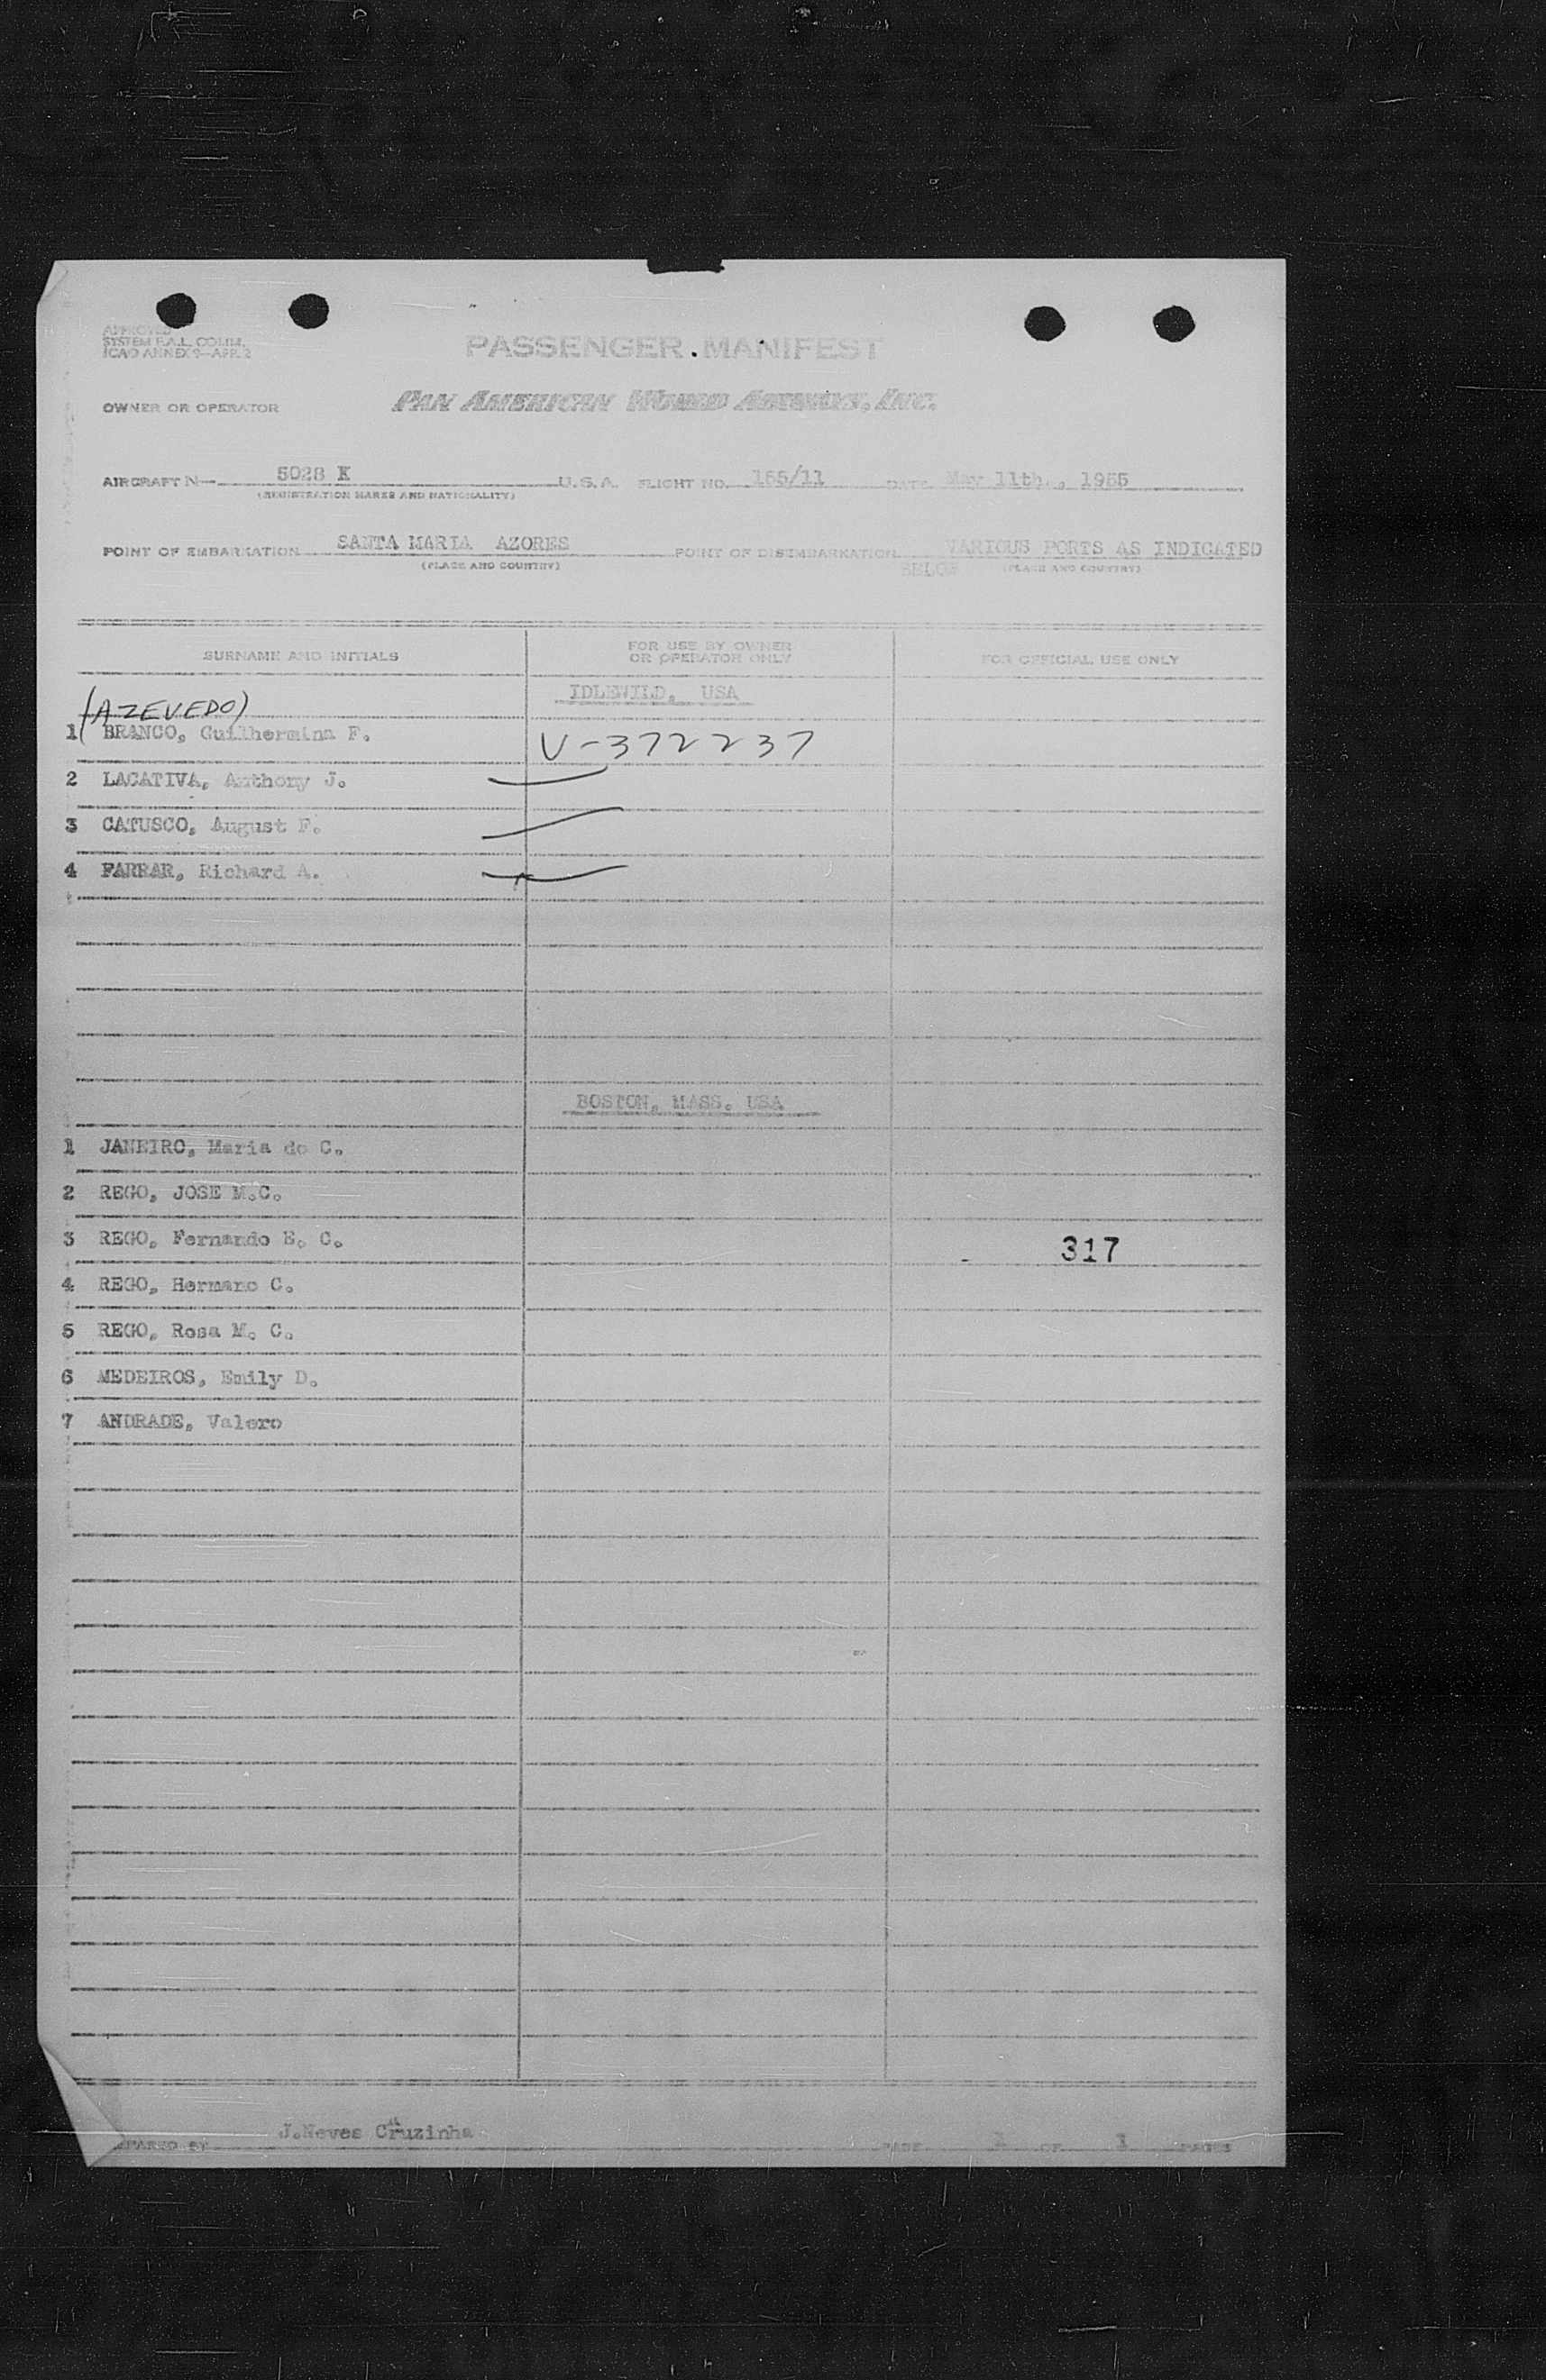 APPROVED
SYSTEM F.A.L. COMM.
ICAO ANNEX 9—APP. 2
PASSENGER MANIFEST
OWNER OR OPERATOR PAN AMERICAN WORLD AIRWAYS, INC.
AIRCRAFT N— 5028 K U.S.A. FLIGHT NO. 155/11 DATE May 11th., 1955
(REGISTRATION MARKS AND NATIONALITY)
POINT OF EMBARKATION SANTA MARIA AZORES POINT OF DISEMBARKATION VARIOUS PORTS AS INDICATED
(PLACE AND COUNTRY) BELOW (PLACE AND COUNTRY)
SURNAME AND INITIALS FOR USE BY OWNER OR OPERATOR ONLY FOR OFFICIAL USE ONLY
IDLEWILD, USA
(AZEVEDO)
1 BRANCO, Guilhermina F. V-372237
2 LACATIVA, Anthony J.
3 CATUSCO, August F.
4 FARRAR, Richard A.
BOSTON, MASS. USA
1 JANEIRO, Maria do C.
2 REGO, JOSE M.C.
3 REGO, Fernando E. C. 317
4 REGO, Hermano C.
5 REGO, Rosa M. C.
6 MEDEIROS, Emily D.
7 ANDRADE, Valero
J.Neves Cruzinha
PREPARED BY PAGE 1 OF 1 PAGES